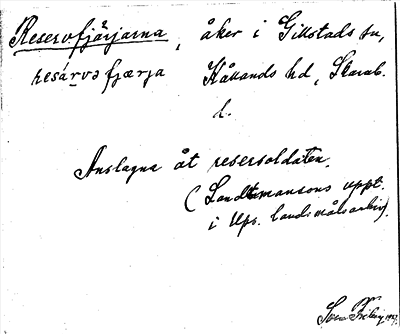 Reservfjärjarna, åker i Gillstads sn,
resárvə fjærja Kållands hd, Skarab.
l.
Anslagna åt reservsoldaten.
(Landtmansons uppt.
i Ups. landsmålsarkiv).